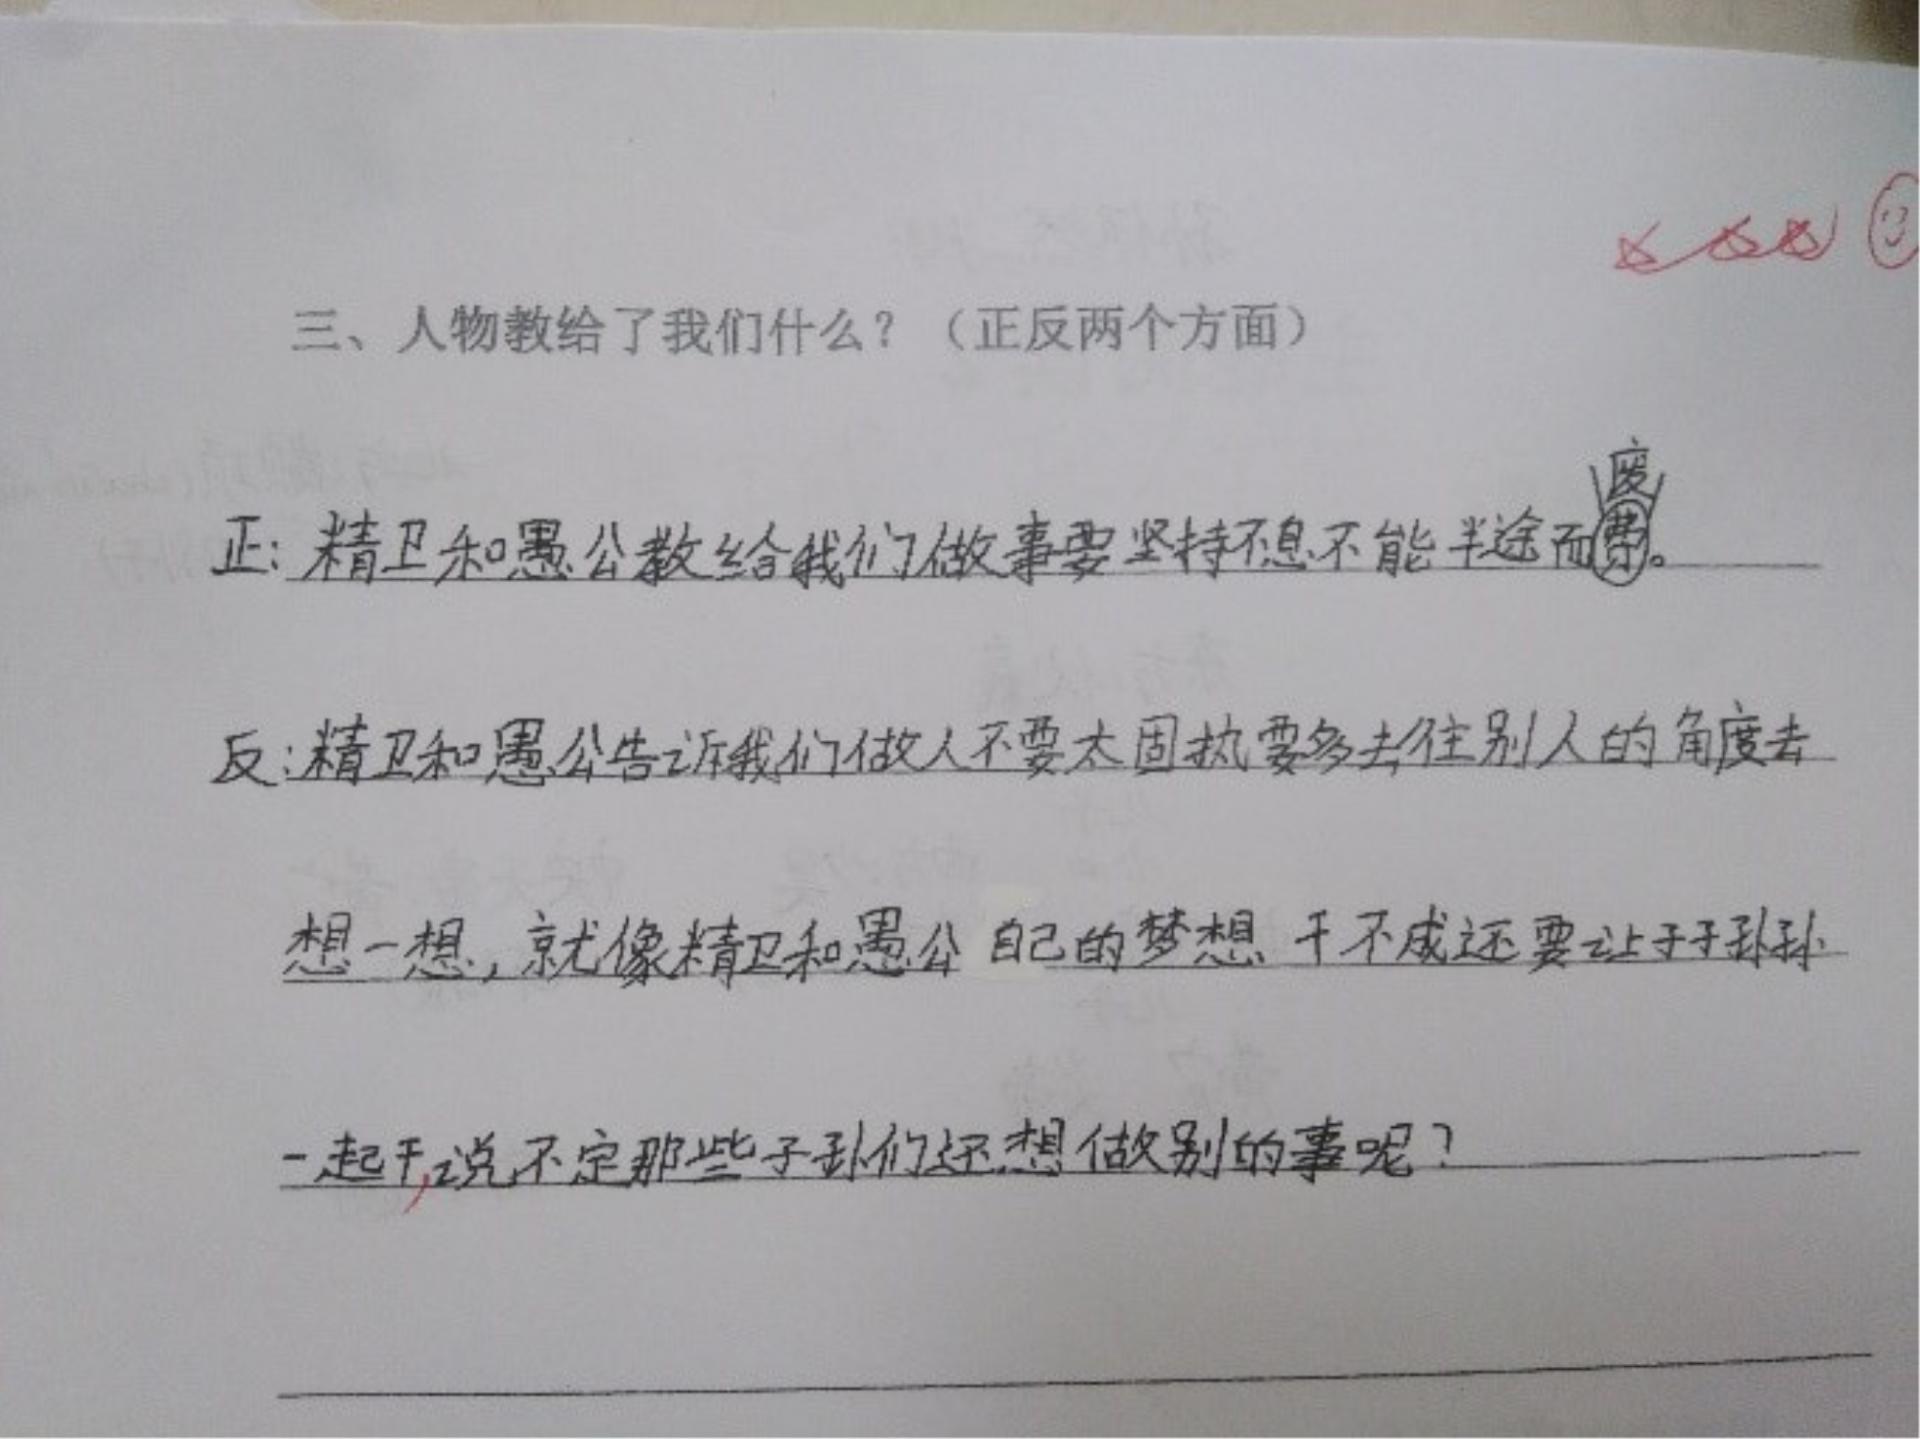 三、人物教给了我们什么？（正反两个方面）
废
正：精卫和愚公教给我们做事要坚持不息不能半途而费。
反：精卫和愚公告诉我们做人不要太固执要多去往别人的角度去
想一想，就像精卫和愚公自己的梦想干不成还要让子子孙孙
一起干，说不定那些子孙们还想做别的事呢？